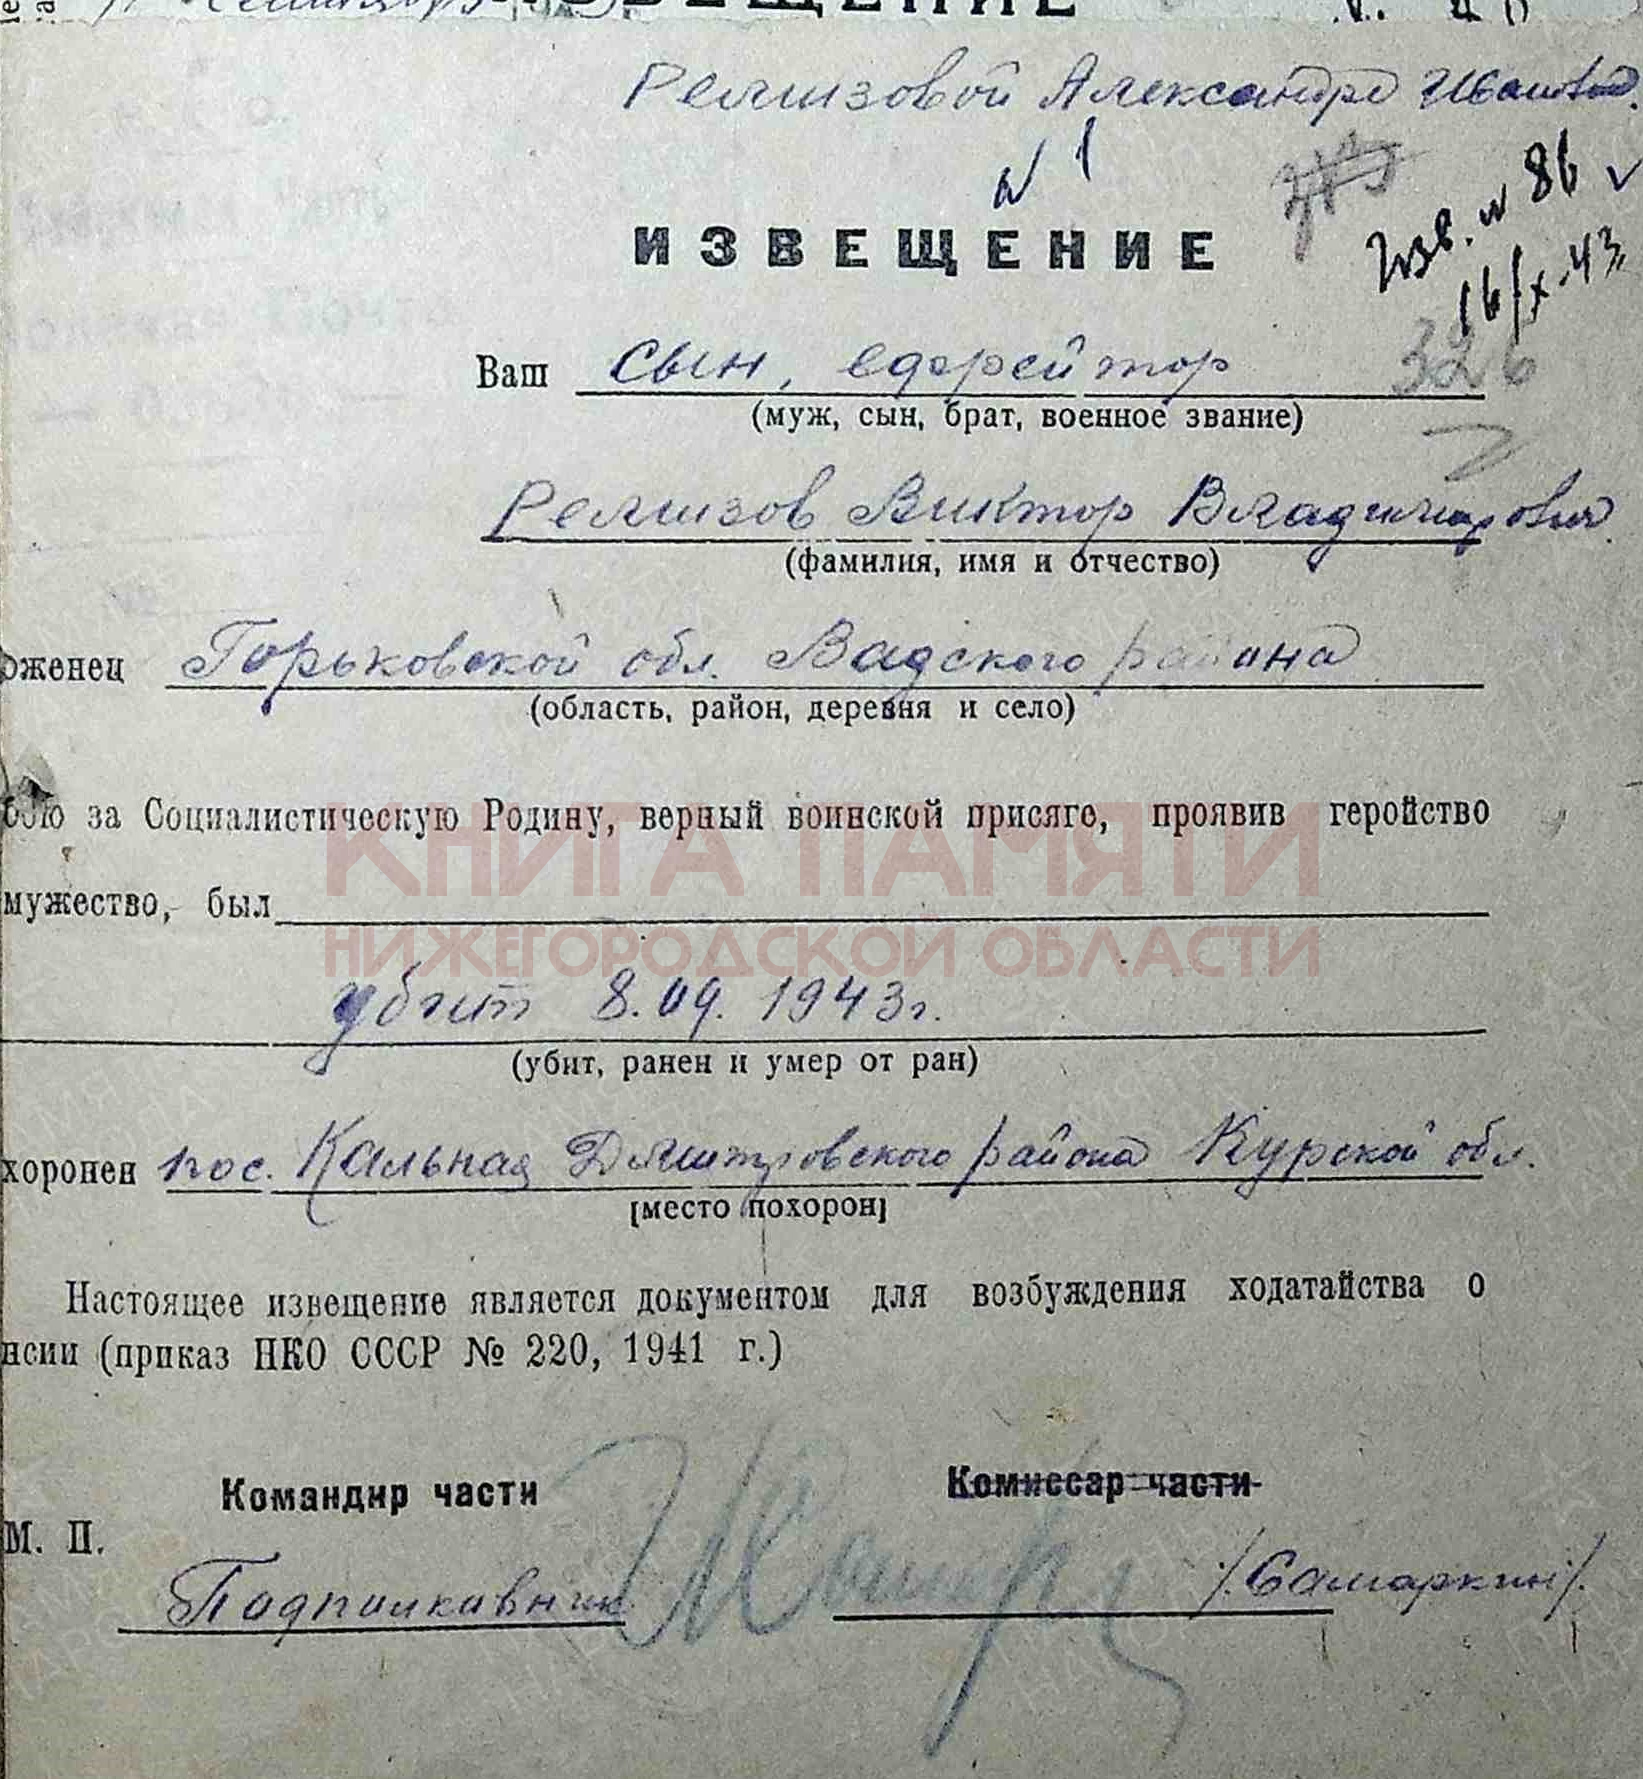 ИЗВЕЩЕНИЕ
Ремизовой Александре Иванов.
N 1
Изв. N 86
16/X-43
ИЗВЕЩЕНИЕ
326
Ваш сын, ефрейтор
(муж, сын, брат, военное звание)
Ремизов Виктор Владимирович
(фамилия, имя и отчество)
оженец Горьковской обл. Вадского района
(область, район, деревня и село)
бою за Социалистическую Родину, верный воинской присяге, проявив геройство
мужество, был
убит 8.09.1943г.
(убит, ранен и умер от ран)
хоронен пос. Кальная Дмитровского района Курской обл.
[место похорон]
Настоящее извещение является документом для возбуждения ходатайства о
нсии (приказ НКО СССР № 220, 1941 г.)
Командир части Комиссар части
М. П.
Подполковник /Самаркин/.
КНИГА ПАМЯТИ
НИЖЕГОРОДСКОЙ ОБЛАСТИ